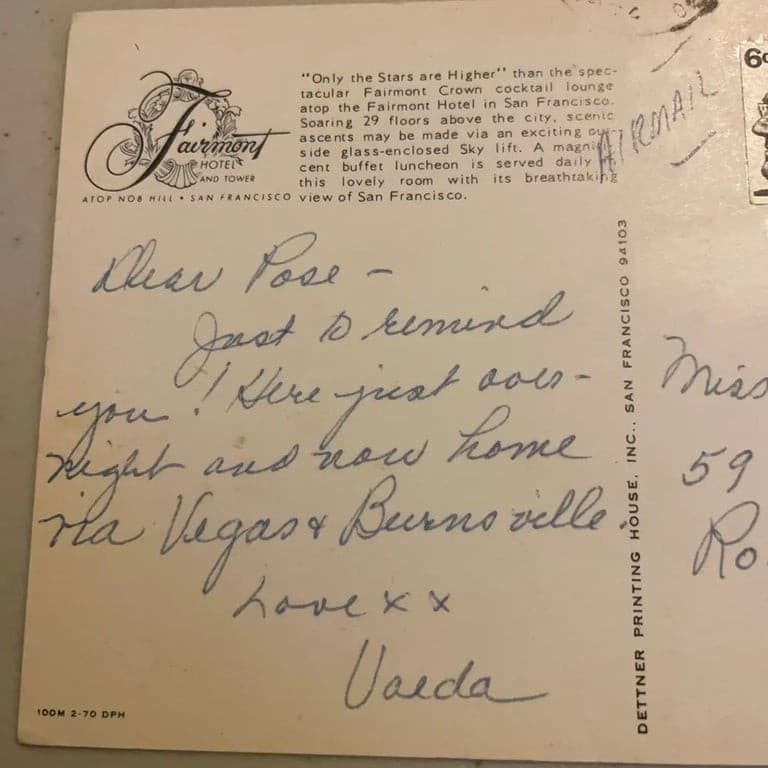 Fairmont
HOTEL
AND TOWER
ATOP NOB HILL • SAN FRANCISCO
"Only the Stars are Higher" than the spec-
tacular Fairmont Crown cocktail lounge
atop the Fairmont Hotel in San Francisco.
Soaring 29 floors above the city, scenic
ascents may be made via an exciting out-
side glass-enclosed Sky lift. A magnifi-
cent buffet luncheon is served daily in
this lovely room with its breathtaking
view of San Francisco.
AIRMAIL
6c
Dear Rose -
Just to remind
you! Here just over-
night and now home
via Vegas & Burnsville.
Love x x
100M 2-70 DPH
DETTNER PRINTING HOUSE, INC., SAN FRANCISCO 94103
Miss
59
Ro